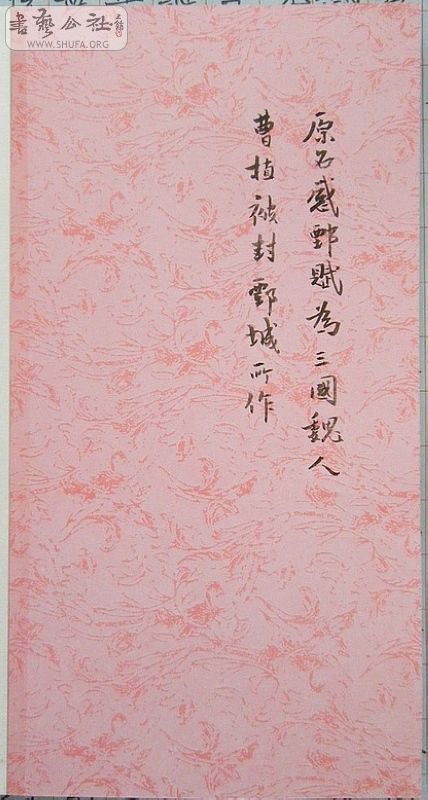 書藝公社
WWW.SHUFA.ORG
原名感鄄賦為三國魏人
曹植被封鄄城所作